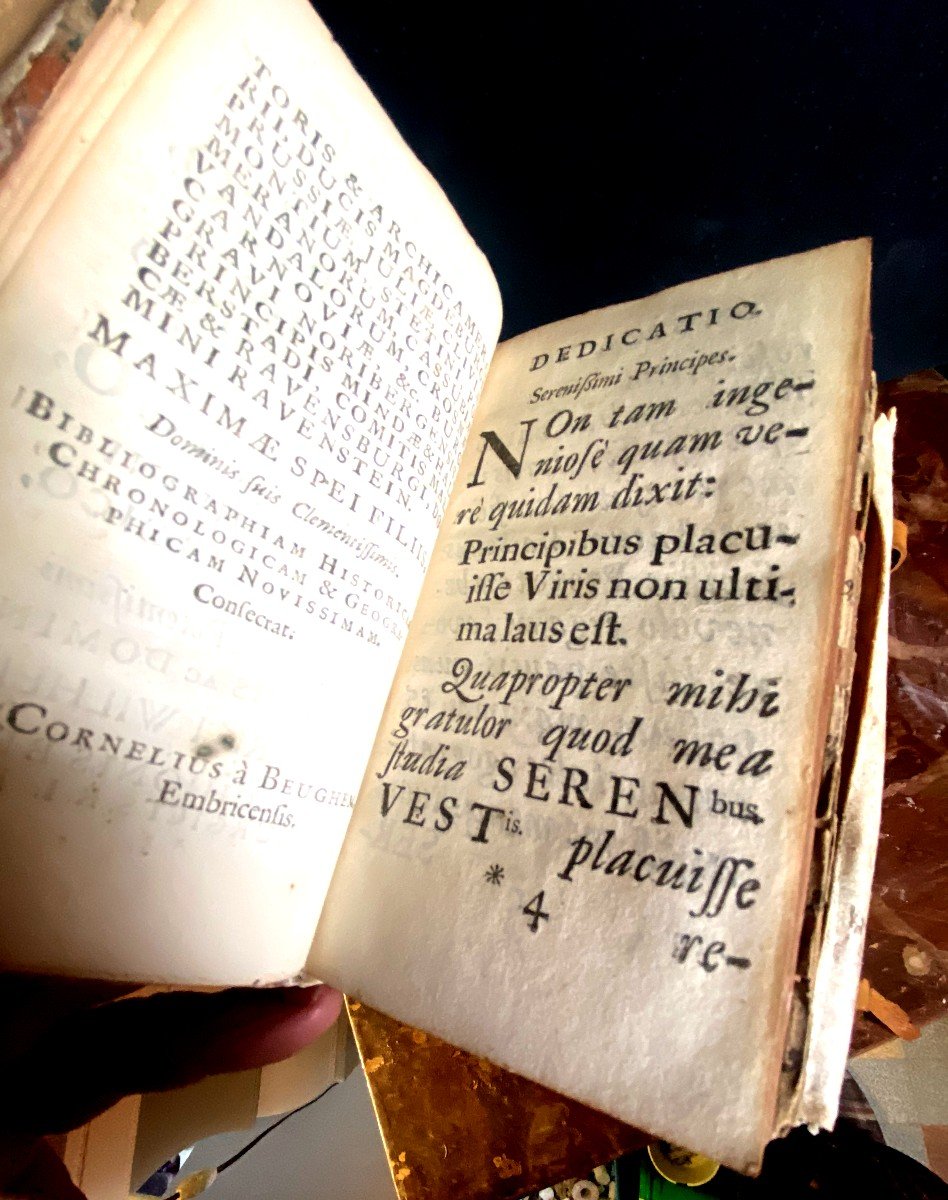 TORIS & ARCHICAM
RII, DUCIS MAGDEBUR
PRUSSIÆ, JULIÆ, CLIVI
MONTIUM, STETINI,
MERANORUM, CASSU
VANDALORUM, CROS
CARNOVIÆ, &c. BUR
GRAVI NORIBERGEN
PRINCIPIS MINDÆ &
BERSTADI, COMITIS
CÆ & RAVENSBURGI,
MINI RAVENSTEIN,
MAXIMÆ SPEI FILIIS,
Dominis suis Clementissimis.
BIBLIOGRAPHIAM HISTORIC
CHRONOLOGICAM & GEOGRA
PHICAM NOVISSIMAM.
Consecrat:
CORNELIUS à BEUGHEM
Embricensis.
DEDICATIO.
Serenißimi Principes.
NOn tam inge-
niosè quam ve-
rè quidam dixit:
Principibus placu-
iſſe Viris non ulti-
ma laus eſt.
Quapropter mihi
gratulor quod mea
ſtudia SERENbus.
VESTis. placuiſſe
* 4
re-